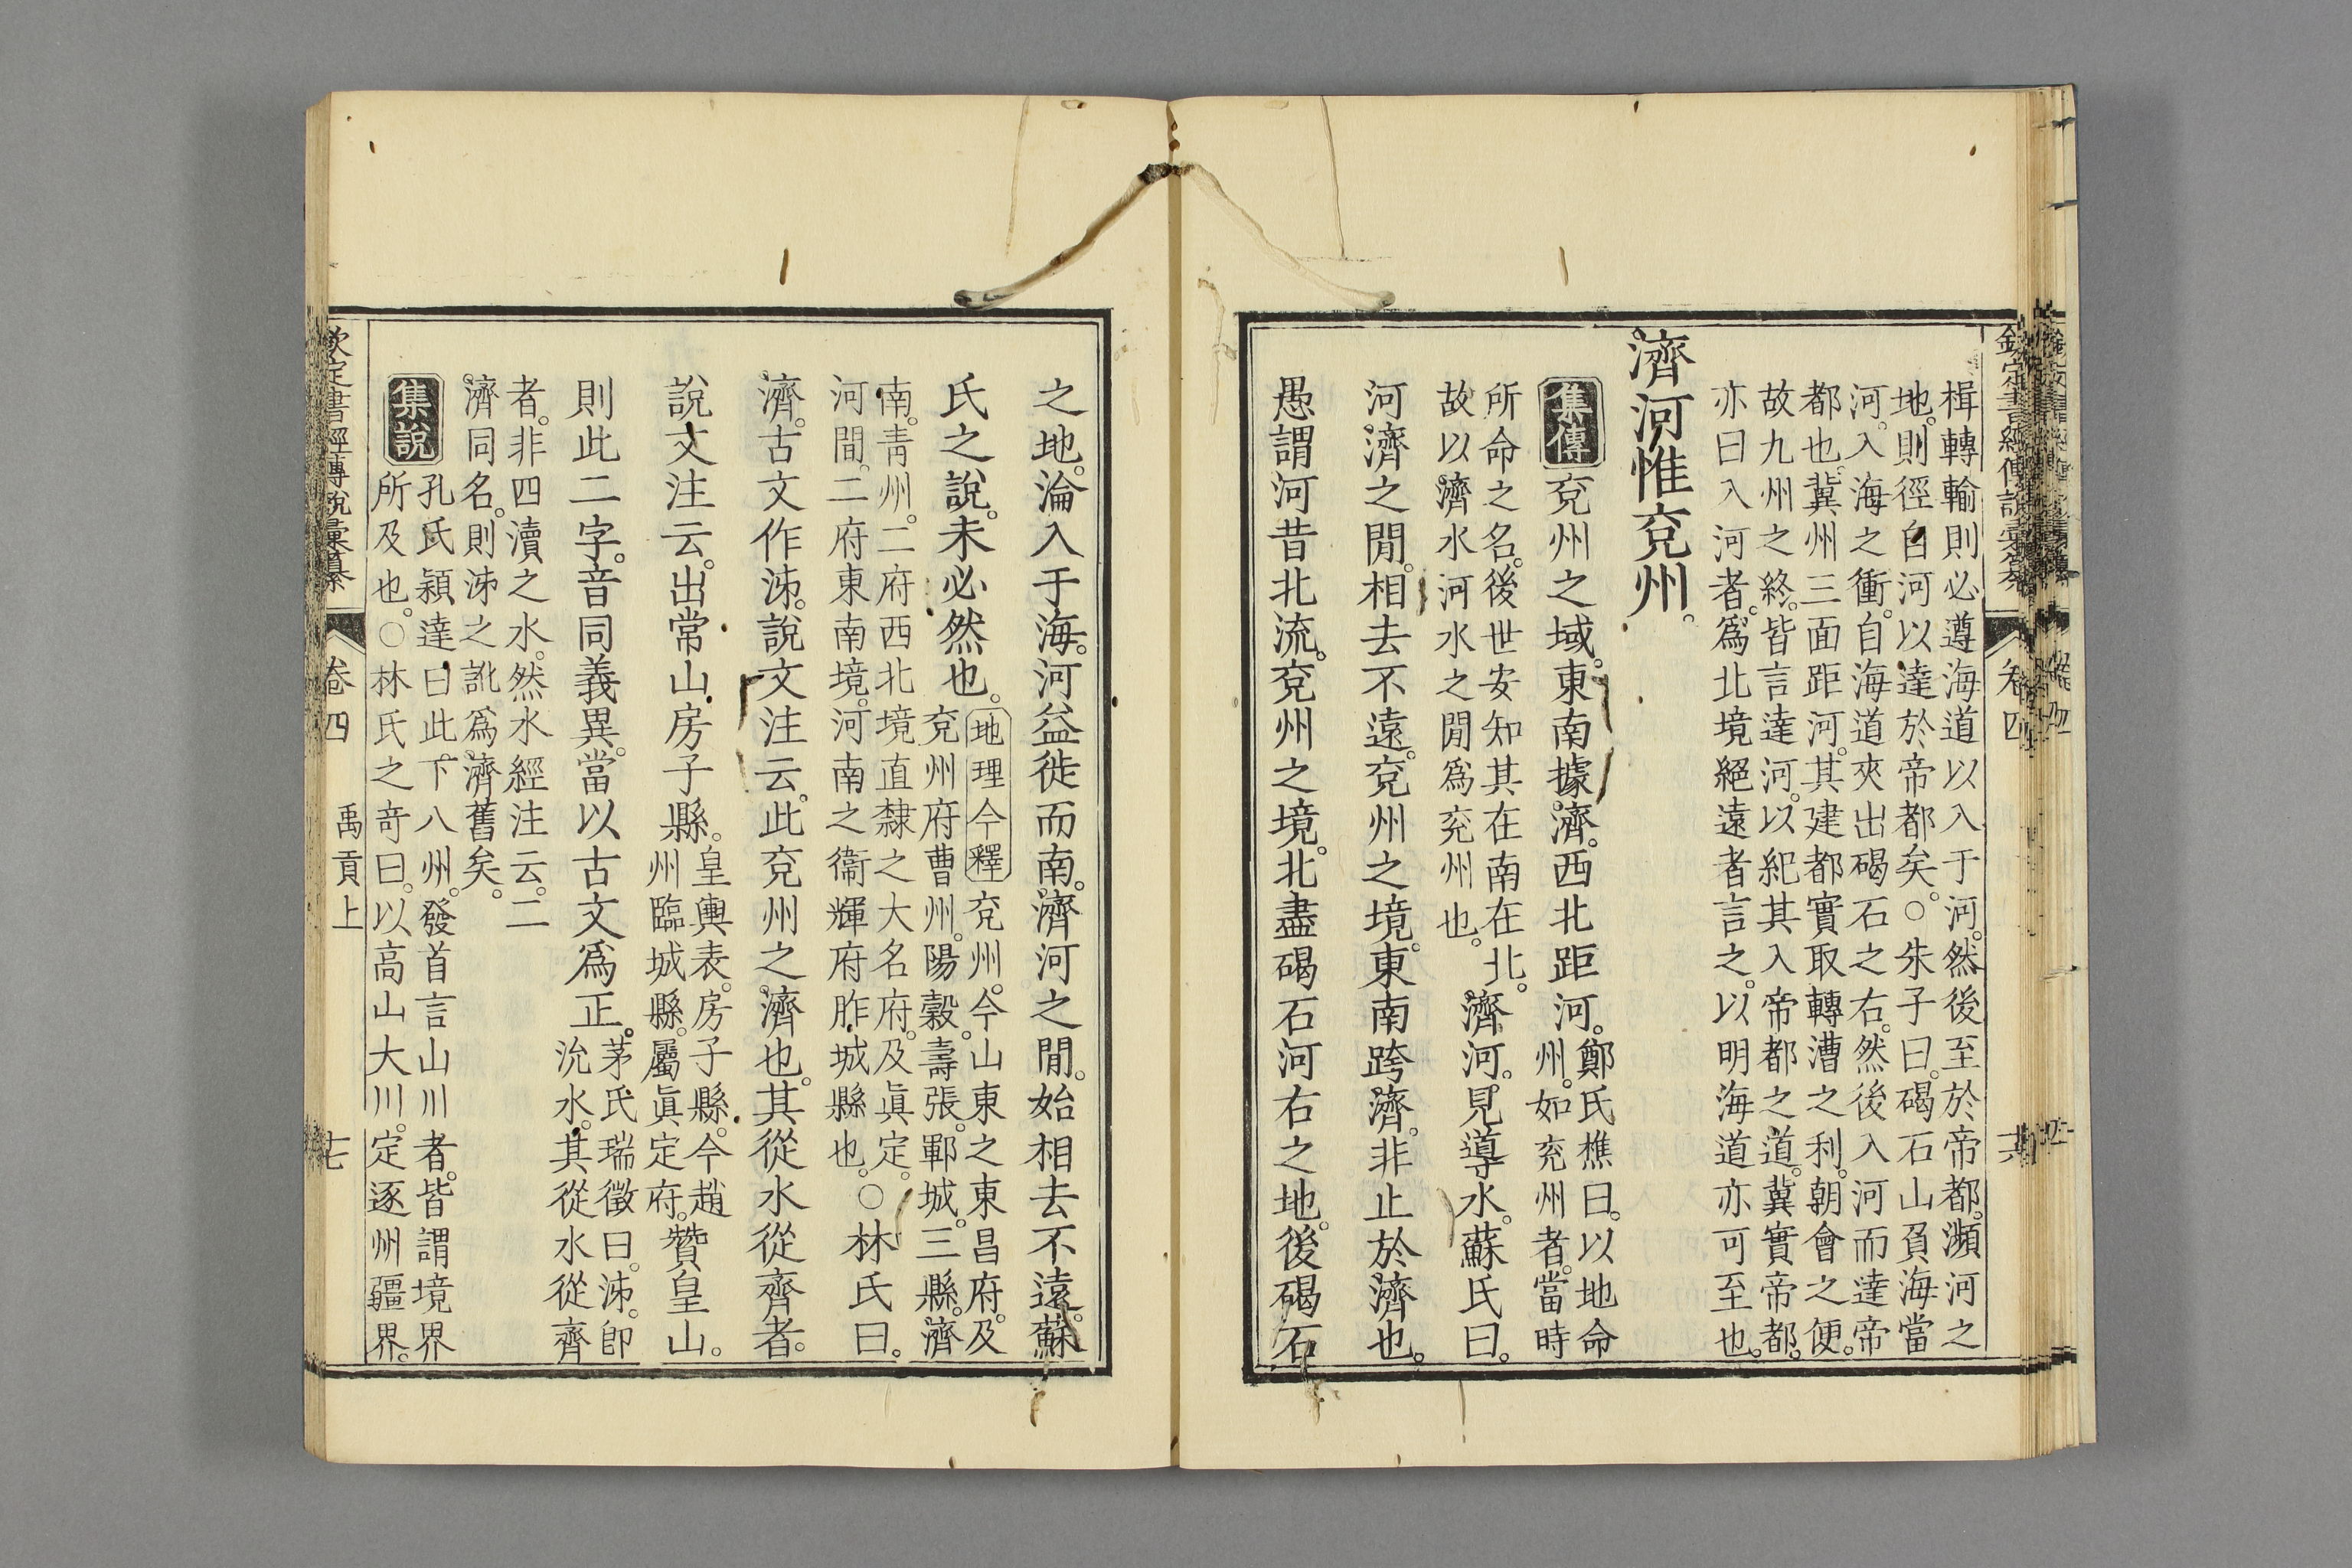 楫轉輸則必遵海道以入于河。然後至於帝都。瀕河之
地。則徑自河以達於帝都矣。○朱子曰。碣石山負海當
河。入海之衝。自海道夾出碣石之右。然後入河而達帝
都也。冀州三面距河。其建都實取轉漕之利。朝會之便。
故九州之終。皆言達河。以紀其入帝都之道。冀實帝都。
亦曰入河者。爲北境絕遠者言之。以明海道亦可至也。
濟河惟兗州。
集傳
兗州之域。東南據濟。西北距河。
鄭氏樵曰。以地命
州。如兗州者。當時
所命之名。後世安知其在南在北。
故以濟水河水之閒爲兗州也。
濟河。見導水。蘇氏曰。
河濟之閒。相去不遠。兗州之境。東南跨濟。非止於濟也。
愚謂河昔北流。兗州之境。北盡碣石河右之地。後碣石
欽定書經傳說彙纂 卷四
之地。淪入于海。河益徙而南。濟河之閒。始相去不遠。蘇
氏之說。未必然也。
地理今釋
兗州。今山東之東昌府。及
兗州府曹州。陽穀。壽張。鄆城。三縣。濟
南。青州。二府西北境直隸之大名府。及眞定。
河間。二府東南境。河南之衞輝府胙城縣也。
○林氏曰。
濟。古文作泲。說文注云。此兗州之濟也。其從水從齊者。
說文注云。出常山房子縣。
皇輿表。房子縣。今趙
州臨城縣。屬眞定府。
贊皇山。
則此二字。音同義異。當以古文爲正。
茅氏瑞徵曰。泲。卽
沇水。其從水從齊
者。非四瀆之水。然水經注云。二
濟同名。則泲之訛爲濟舊矣。
集說
孔氏穎達曰此下八州。發首言山川者。皆謂境界
所及也。○林氏之奇曰。以高山大川。定逐州疆界。
欽定書經傳說彙纂 卷四 禹貢上